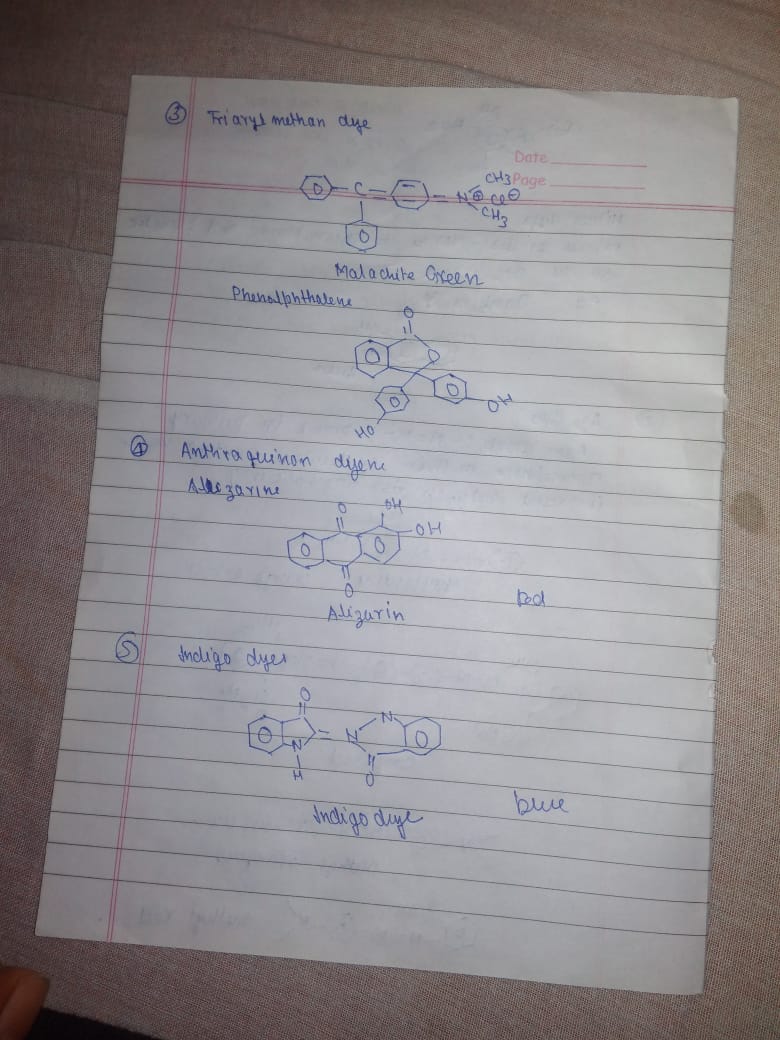 ③ Triaryl methan dye
Date
Page
CH3
C
N⊕ Cl⊖
CH3
Malachite Green
Phenolphthalene
O
O
OH
HO
④ Anthraquinon dyene
Alizarine
O OH
OH
O
Red
Alizarin
⑤ Indigo dyes
O
N
N N
H
O
Indigo dye
blue